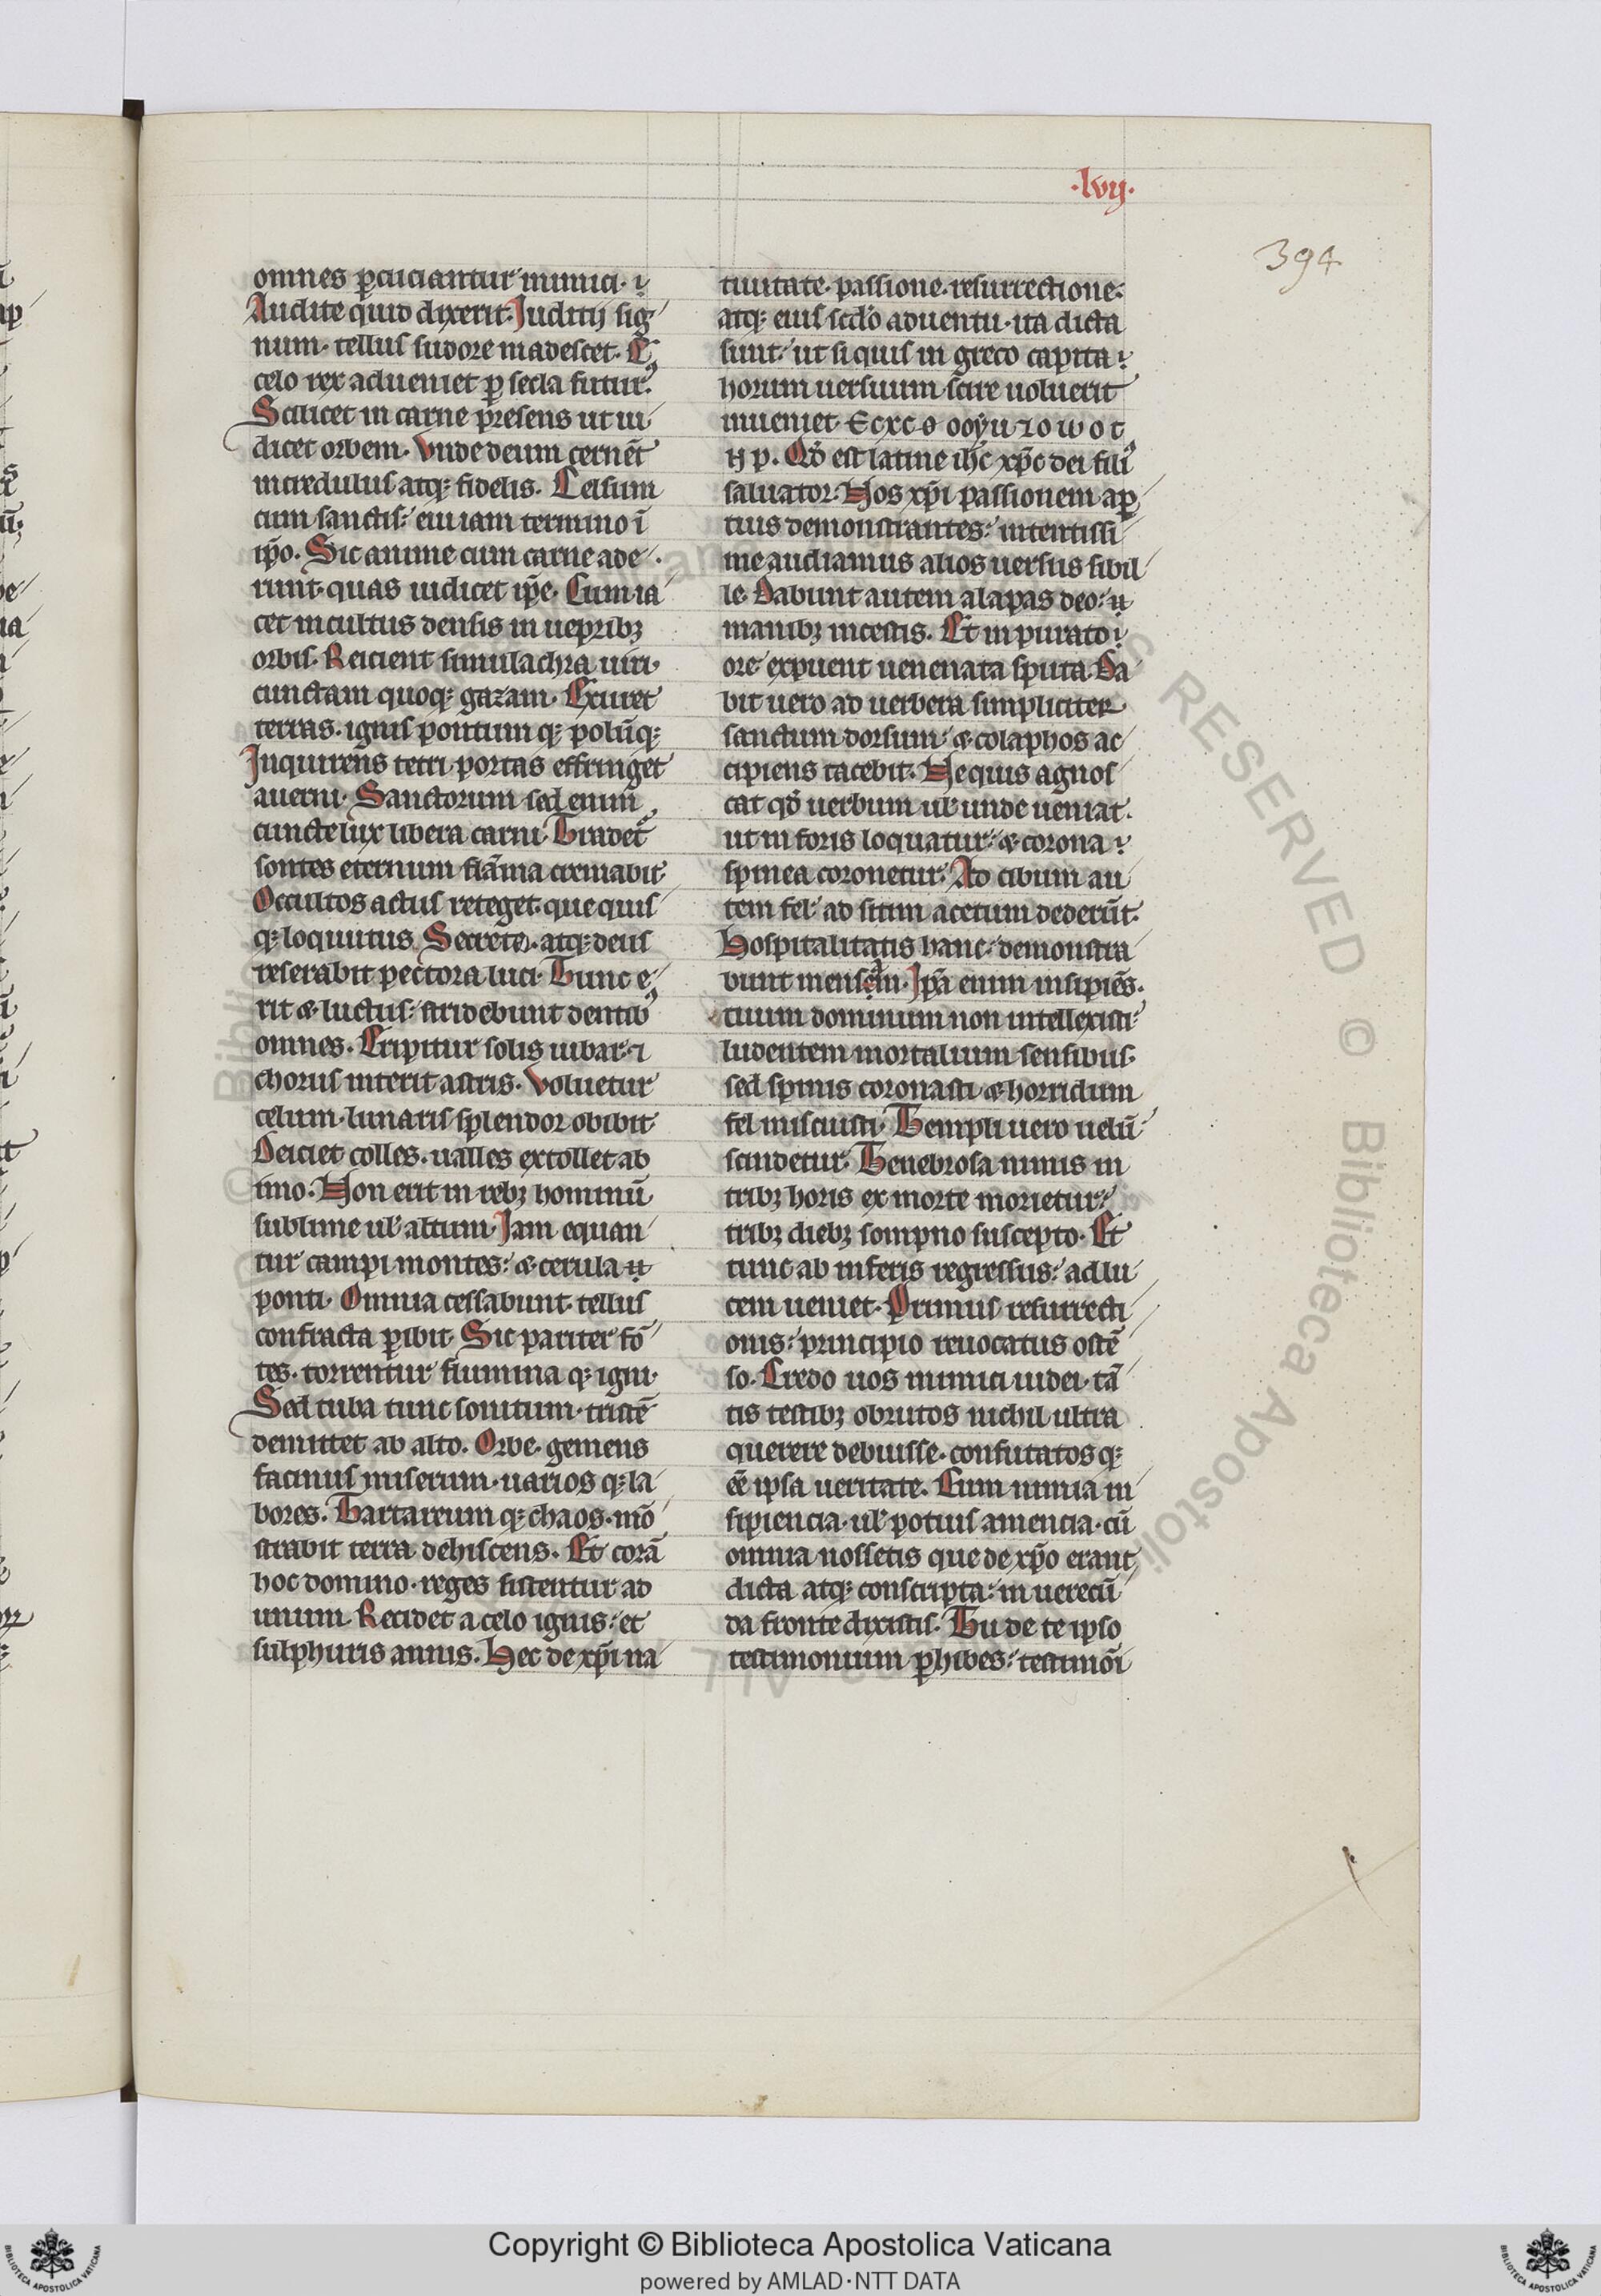 .lvij.
394
omnes ꝑcuciantur inimici·
Audite quid dixerit. Judicij sig
num· tellus sudore madescet. E
celo rex adueniet ꝑ secla futurꝰ.
Scilicet in carne presens ut iu
dicet orbem. Vnde deum cernēt
incredulus atqꝫ fidelis. Celsum
cum sanctis: eui iam termino ī
ip̄o. Sic anime cum carne ade
runt· quas iudicet ip̄e. Cum ia
cet incultus densis in uepribꝫ
orbis. Reicient simulachra uiri·
cunctam quoqꝫ gazam. Exuret
terras· ignis pontum qꝫ polūqꝫ
Inquirens tetri portas effringet
auerni. Sanctorum sed enim
cuncte lux libera carni. Tradetᷣ
sontes eternum flāma cremabit
Occultos actus reteget· que quis
qꝫ loquutus Secreto. atqꝫ deus
reserabit pectora luci. Tunc e
rit & luctus: stridebunt dentibꝰ
omnes. Eripitur solis iubar· ⁊
chorus interit astris. Voluetur
celum· lunaris splendor obibit
Deiciet colles. ualles extollet ab
imo. Non erit in rebꝫ hominū
sublime ul̓ altum. Jam equan
tur campi montes: & cerula
ponti. Omnia cessabunt· tellus
confracta ꝑibit. Sic pariter fō
tes. torrentur flumina qꝫ igni·
Sed tuba tunc sonitum· tristē
demittet ab alto. Orbe· gemens
facinus miserum· uarios qꝫ la
bores. Tartareum qꝫ chaos· mō
strabit terra dehiscens. Et corā
hoc domino· reges sistentur ad
unum. Recidet a celo ignis: et
sulphuris amnis. Hec de xp̄i na
tiuitate· passione· resurrectione:
atqꝫ eius scd̓o aduentu· ita dicta
sunt: ut si quis in greco capita
horum uersuum scire uoluerit
inueniet
Qd̓ est latine ih̄c xp̄c dei filiꝰ
saluator. Hos xp̄i passionem aꝑ
tius demonstrantes: intentissi
me audiamus alios uersus sibil
le. Dabunt autem alapas deo:
manibꝫ incestis. Et inpurato
ore expuent uenenata sputa. Da
bit uero ad uerbera simpliciter
sanctum dorsum: & colaphos ac
cipiens tacebit. Ne quis agnos
cat qd̓ uerbum ul̓ unde ueniat.
ut in foris loquatur: & corona
spinea coronetur. Ad cibum au
tem fel· ad sitim acetum dederūt.
Hospitalitatis hanc: demonstra
bunt mensam. Ip̄a enim insipiēs·
tuum dominum non intellexisti:
ludentem mortalium sensibus·
sed spinis coronasti & horridum
fel miscuisti. Templi uero uelū
scindetur. Tenebrosa nimis in
tribꝫ horis ex morte morietur:
tribꝫ diebꝫ sompno suscepto. Et
tunc ab inferis regressus: ad lu
cem ueniet. Primus resurrecti
onis: principio reuocatus ostē
so. Credo uos inimici iudei· tā
tis testibꝫ obrutos nichil ultra
querere debuisse· confutatos qꝫ
eē ipsa ueritate. Cum nimia in
sipiencia· ul̓ potius amencia· cū
omnia nossetis que de xp̄o erant
dicta atqꝫ conscripta: in uerecū
da fronte dixistis. Tu de te ipso
testimonium ꝑhibes: testimōi
Copyright © Biblioteca Apostolica Vaticana
powered by AMLAD·NTT DATA